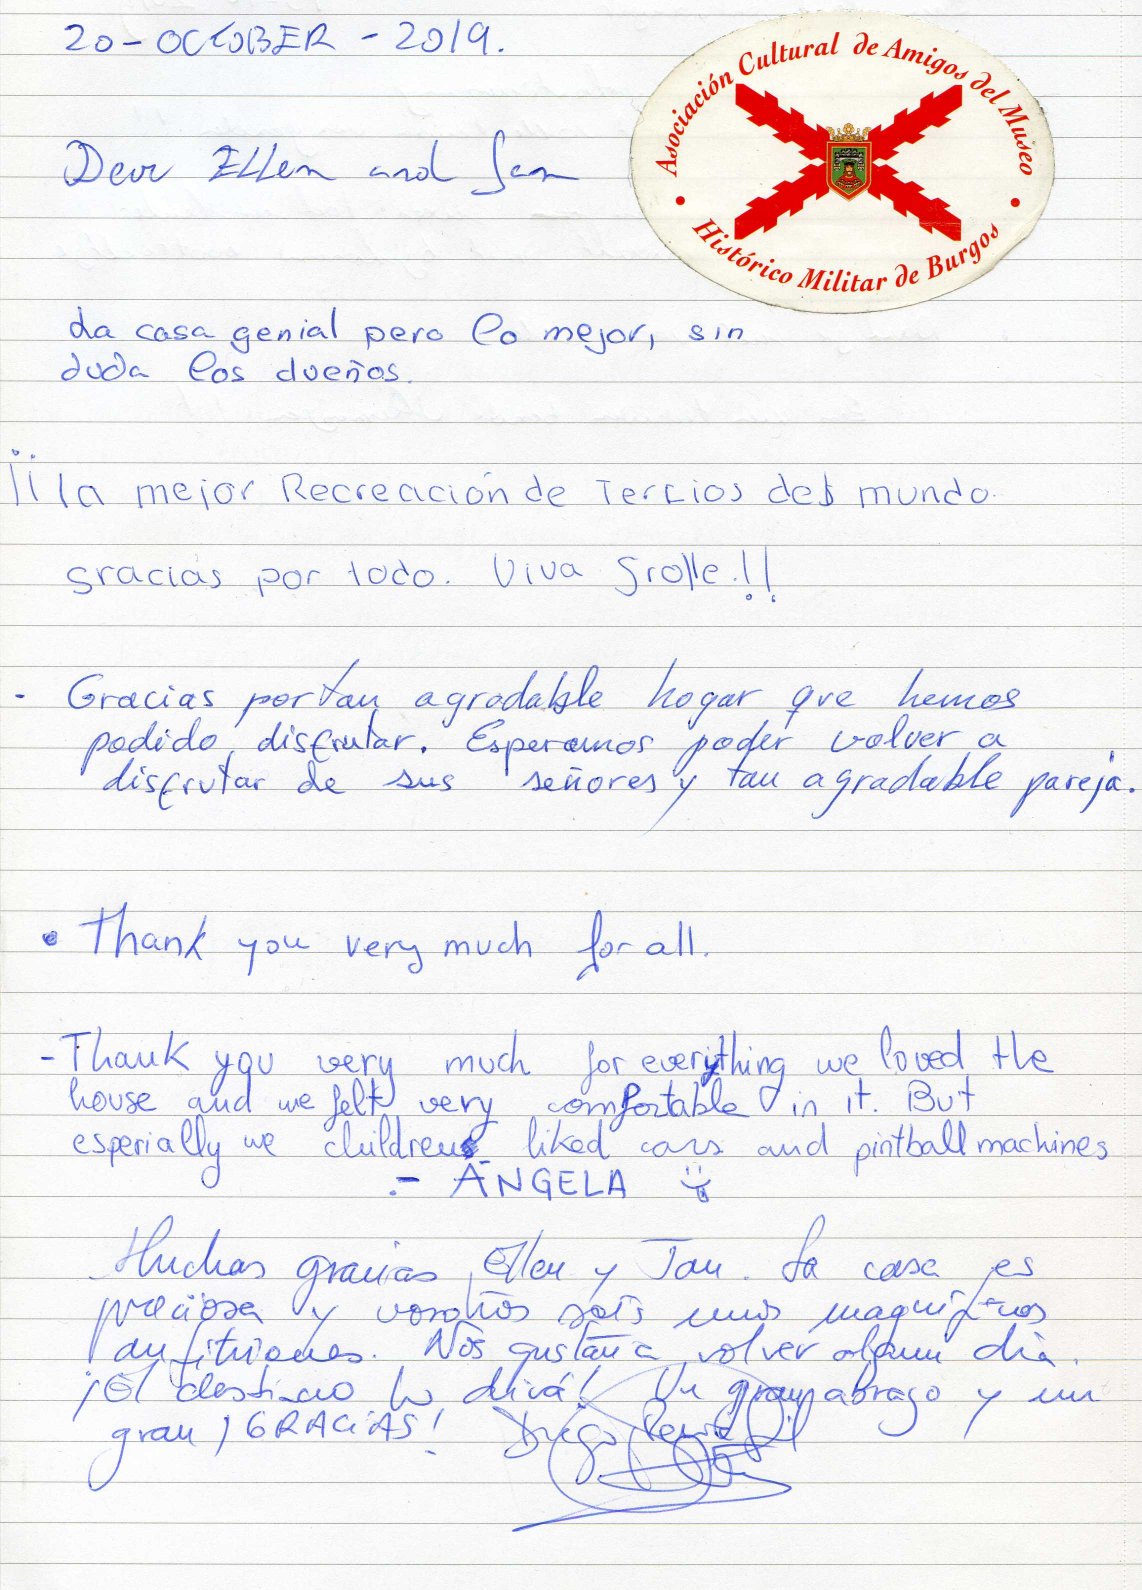 20-OCTOBER - 2019.
Asociación Cultural de Amigos del Museo
Histórico Militar de Burgos
Dear Ellen and Jan
La casa genial pero lo mejor, sin
duda los dueños.
¡¡la mejor Recreación de Tercios del mundo.
gracias por todo. Viva Grolle.!!
- Gracias por tan agradable hogar que hemos
podido disfrutar. Esperamos poder volver a
disfrutar de sus señores y tan agradable pareja.
• Thank you very much for all.
- Thank you very much for everything we loved the
house and we felt very comfortable in it. But
esperially we children liked cars and pintball machines
.- ÁNGELA
Muchas gracias, Ellen y Jan. La casa es
preciosa y vosotros sois unos magníficos
anfitriones. Nos gustaría volver algun día.
¡El destino lo dirá! Un gran abrazo y un
gran ¡GRACIAS! Diego